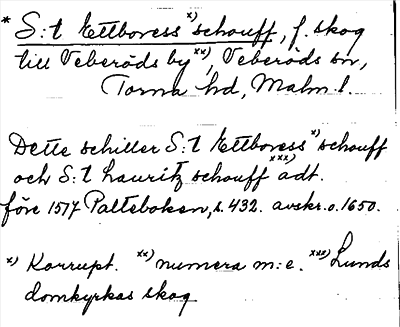 * S:t Ettboress x) schouff, f. skog
till Veberöds by xx), Veberöds sn,
Torna hd, Malm. l.
Dette schiller S:t Ettboress x) schouff
och S:t Lauritz schouff xxx) adt.
före 1517 Palteboken, s. 432. avskr. o. 1650.
x) Korrupt. xx) numera m:e. xxx) Lunds
domkyrkas skog